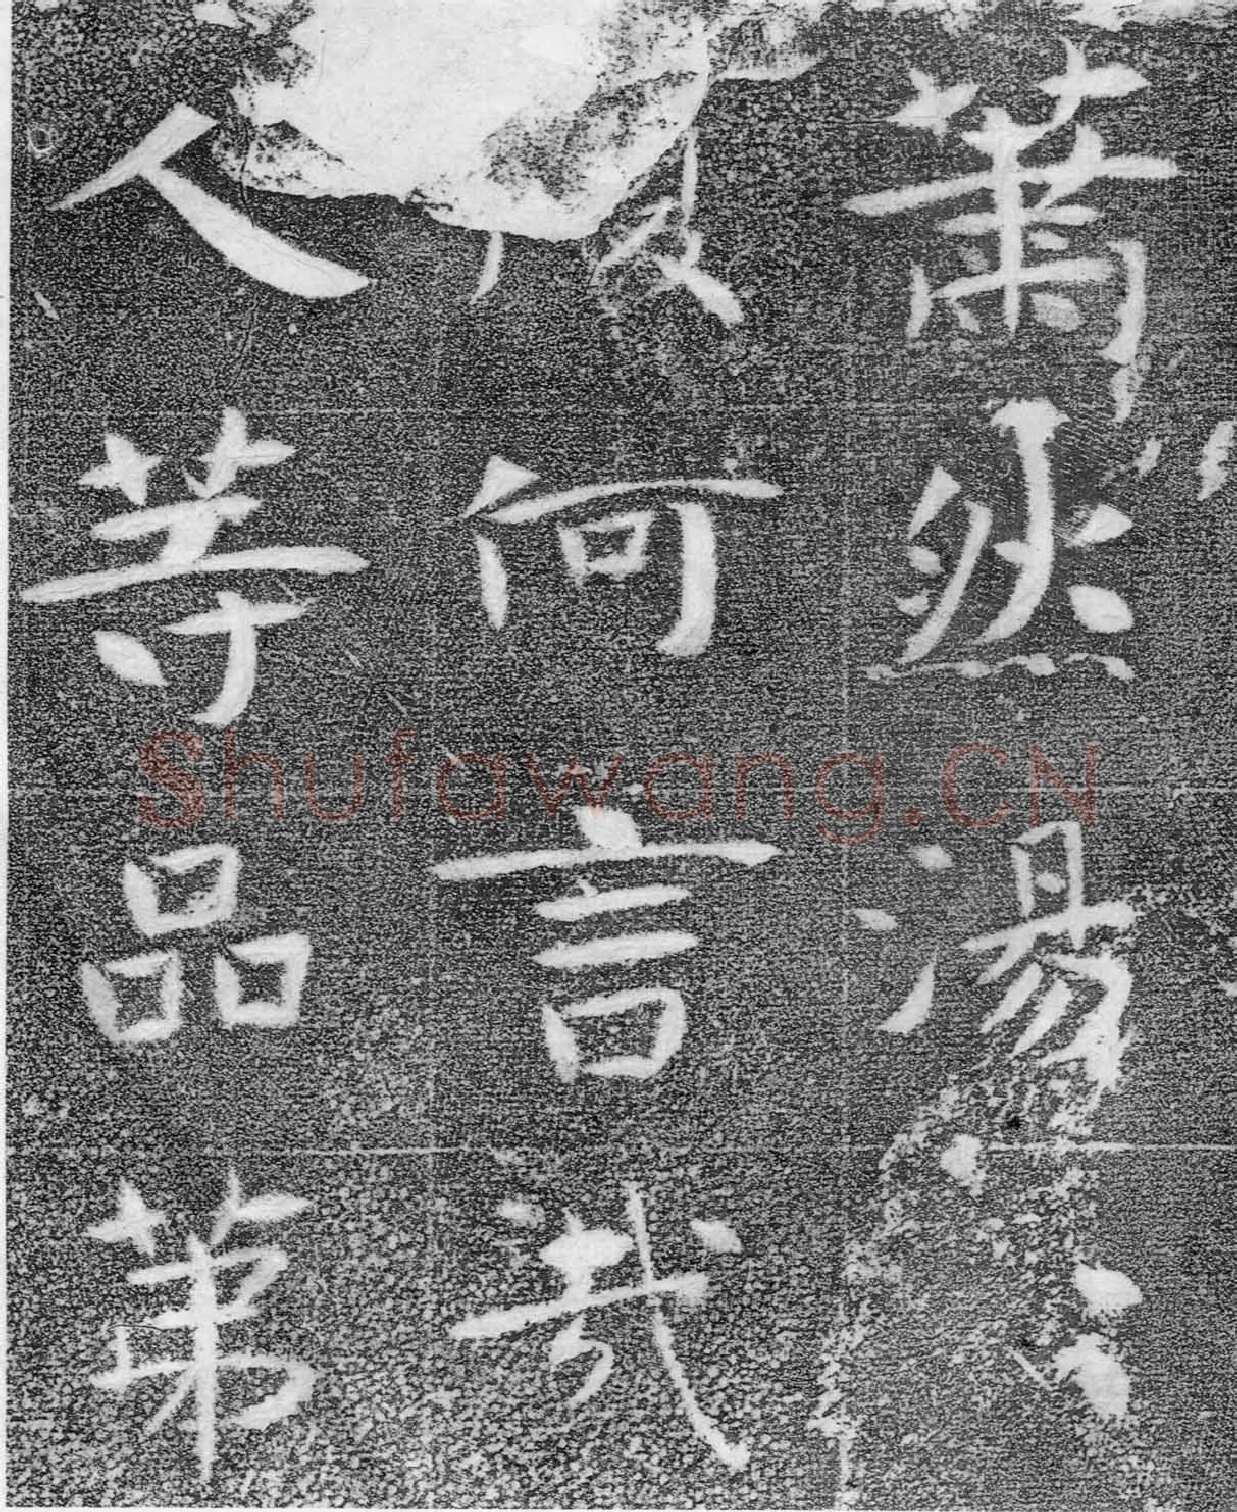 蕭然湯
何言哉
人等品第
Shufawang.CN